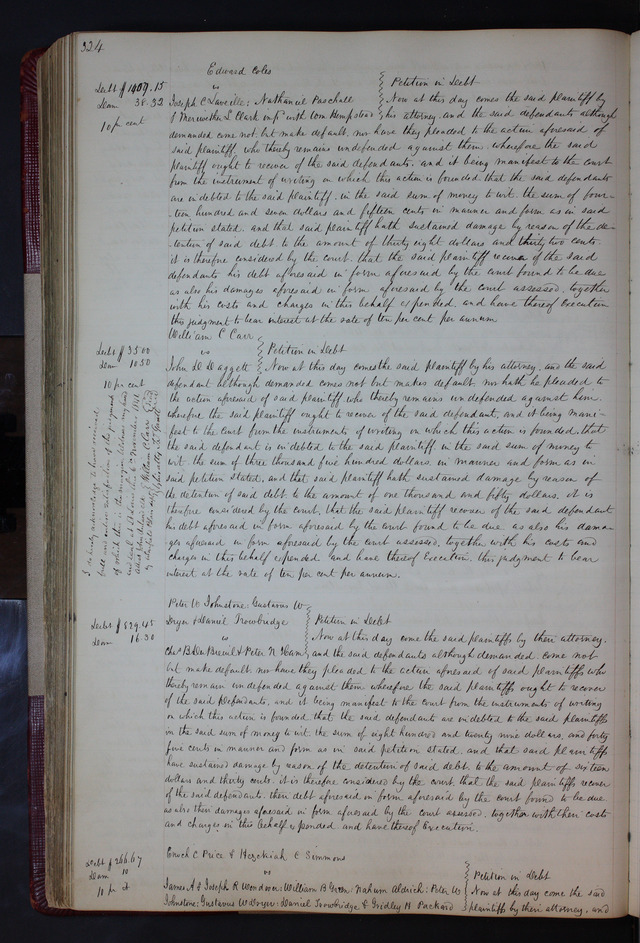 324
Edward Coles
vs
Petition in Debt
Debt $1407.15
Dam 38.32
10 pr cent
Joseph C Laveille: Nathaniel Paschall
& Meriwether L Clark imp with Wm Hempstead
Now at this day comes the said plaintiff by
his attorney. and the said defendants although
demanded come not but make default. nor have they pleaded to the action aforesaid of
said plaintiff, who thereby remains undefended against them. wherefore the said
plaintiff ought to recover of the said defendants. and it being manifest to the court
from the instrument of writing on which this action is founded. that the said defendants
are indebted to the said plaintiff. in the said sum of money to wit. the sum of four-
teen hundred and seven dollars and fifteen cents in manner and form as in said
petition stated. and that said plaintiff hath sustained damage by reason of the de-
tention of said debt to the amount of thirty eight dollars and thirty two cents.
it is therefore considered by the court. that the said plaintiff recover of the said
defendants his debt aforesaid in form aforesaid by the court found to be due
as also his damages aforesaid in form aforesaid by the court assessed. together
with his costs and charges in this behalf expended. and have thereof Execution
this judgment to bear interest at the rate of ten per cent per annum.
William C Carr
vs
Petition in Debt
Debt $3500
Dam 1050
10 pr cent
John D Daggett
Now at this day comes the said plaintiff by his attorney. and the said
defendant although demanded comes not but makes default. nor hath he pleaded to
the action aforesaid of said plaintiff who thereby remains undefended against him.
wherefore the said plaintiff ought to recover of the said defendant. and it being mani-
fest to the court from the instruments of writing on which this action is founded. that
the said defendant is indebted to the said plaintiff in the said sum of money to
wit the sum of three thousand five hundred dollars. in manner and form as in
said petition stated. and that said plaintiff hath sustained damage by reason of
the detention of said debt. to the amount of one thousand and fifty dollars. it is
therefore considered by the court, that the said plaintiff recover of the said defendant
his debt aforesaid in form aforesaid by the court found to be due as also his dama-
ges aforesaid in form aforesaid by the court assessed, together with his costs and
charges in this behalf expended and have thereof Execution. this judgment to bear
interest at the rate of ten per cent per annum.
I do hereby acknowledge to have received
full and entire satisfaction of the judgment
of which this is the margin. Witness my hand
and seal at St Louis this 6th November 1841
William C Carr
Peter W Johnstone: Gustavus W
Dryer & Daniel Trowbridge
vs
Petition in Debt
Debt $829.45
Dam 16.30
Chs B Dn Breuil & Peter N Ham
Now at this day come the said plaintiffs by their attorney.
and the said defendants although demanded. come not
but make default. nor have they pleaded to the action aforesaid of said plaintiffs who
thereby remain undefended against them wherefore the said plaintiffs ought to recover
of the said defendants. and it being manifest to the court from the instruments of writing
on which this action is founded that the said defendants are indebted to the said plaintiffs
in the said sum of money to wit. the sum of eight hundred and twenty nine dollars. and forty
five cents in manner and form as in said petition stated. and that said plaintiffs
have sustained damage by reason of the detention of said debt. to the amount of sixteen
dollars and thirty cents. it is therefore considered by the court, that the said plaintiffs recover
of the said defendants. their debt aforesaid in form aforesaid by the court found to be due
as also their damages aforesaid in form aforesaid by the court assessed, together with their costs
and charges in this behalf expended. and have thereof Execution.
Enoch C Price & Hezekiah C Simmons
vs
Petition in Debt
Debt $266.67
Dam 10
James A & Joseph R Woodson: William B Green: Nahum Aldrich: Peter W
Now at this day come the said
Johnstone: Gustavus W Dryer: Daniel Trowbridge & Gridley H Packard
plaintiffs by their attorney. and